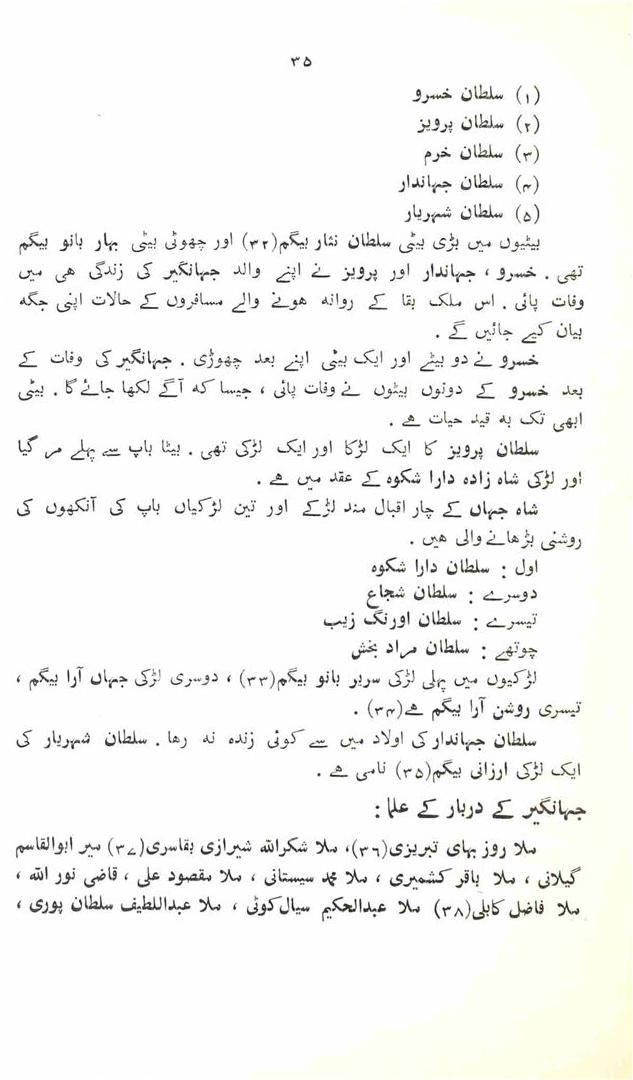 ۳۵
(۱) سلطان خسرو
(۲) سلطان پرویز
(۳) سلطان خرم
(۴) سلطان جہاندار
(۵) سلطان شہریار
بیٹیوں میں بڑی بیٹی سلطان نثار بیگم(۳۲) اور چھوٹی بیٹی بہار بانو بیگم
تھی ۔ خسرو ، جہاندار اور پرویز نے اپنے والد جہانگیر کی زندگی ھی میں
وفات پائی ۔ اس ملک بقا کے روانہ ھونے والے مسافروں کے حالات اپنی جگہ
بیان کیے جائیں گے ۔
خسرو نے دو بیٹے اور ایک بیٹی اپنے بعد چھوڑی ۔ جہانگیر کی وفات کے
بعد خسرو کے دونوں بیٹوں نے وفات پائی ، جیسا کہ آگے لکھا جائے گا ۔ بیٹی
ابھی تک بہ قید حیات ھے ۔
سلطان پرویز کا ایک لڑکا اور ایک لڑکی تھی ۔ بیٹا باپ سے پہلے مر گیا
اور لڑکی شاہ زادہ دارا شکوہ کے عقد میں ھے ۔
شاہ جہاں کے چار اقبال مند لڑکے اور تین لڑکیاں باپ کی آنکھوں کی
روشنی بڑھانے والی ھیں ۔
اول : سلطان دارا شکوہ
دوسرے : سلطان شجاع
تیسرے : سلطان اورنگ زیب
چوتھے : سلطان مراد بخش
لڑکیوں میں پہلی لڑکی سریر بانو بیگم(۳۳) ، دوسری لڑکی جہاں آرا بیگم ،
تیسری روشن آرا بیگم ھے(۳۴) ۔
سلطان جہاندار کی اولاد میں سے کوئی زندہ نہ رھا ۔ سلطان شہریار کی
ایک لڑکی ارزانی بیگم(۳۵) نامی ھے ۔
جہانگیر کے دربار کے علما :
ملا روز بہای تبریزی(۳۶)، ملا شکراللہ شیرازی بقاسری(۳۷) میر ابوالقاسم
گیلانی ، ملا باقر کشمیری ، ملا محمد سیستانی ، ملا مقصود علی ، قاضی نور اللہ ،
ملا فاضل کابلی(۳۸) ملا عبدالحکیم سیالکوٹی ، ملا عبداللطیف سلطان پوری ،